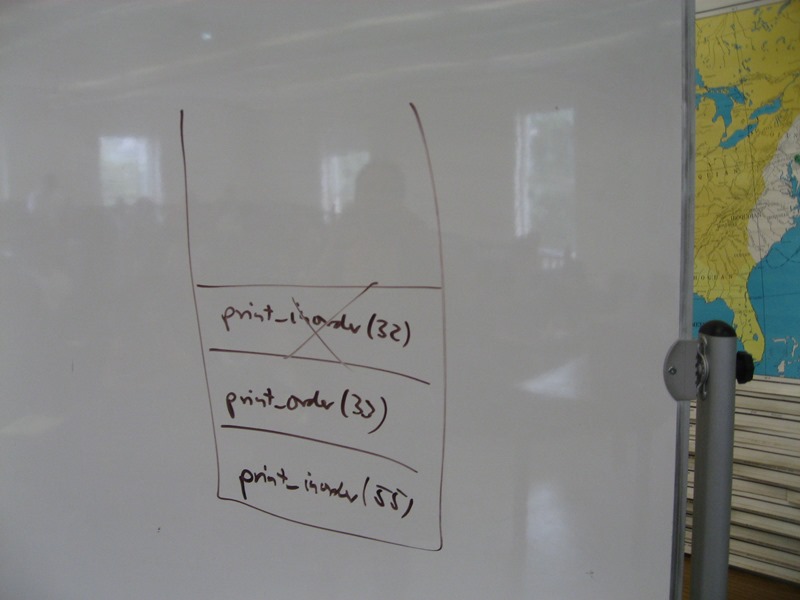 print_inorder(32)
print_order(33)
print_inorder(55)